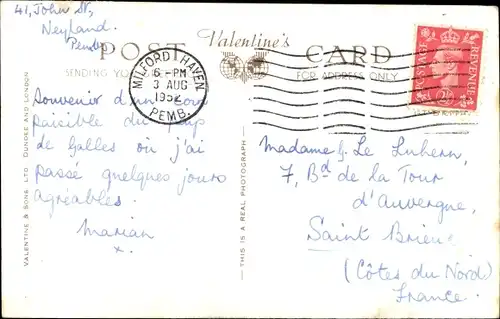 41, John St,
Neyland.
Pemb.
POST Valentine's CARD
SENDING YO FOR ADDRESS ONLY
MILFORD HAVEN
6 - PM
3 AUG
1952
PEMB.
POSTAGE REVENUE
2½ D
Souvenir d'un coin
paisible du pays
de Galles où j'ai
passé quelques jours
agréables.
Marian
x.
Madame Le
7, Bd de la Tour
d'Auvergne,
Saint Brieuc
(Côtes du Nord)
France.
VALENTINE & SONS LTD DUNDEE AND LONDON
THIS IS A REAL PHOTOGRAPH